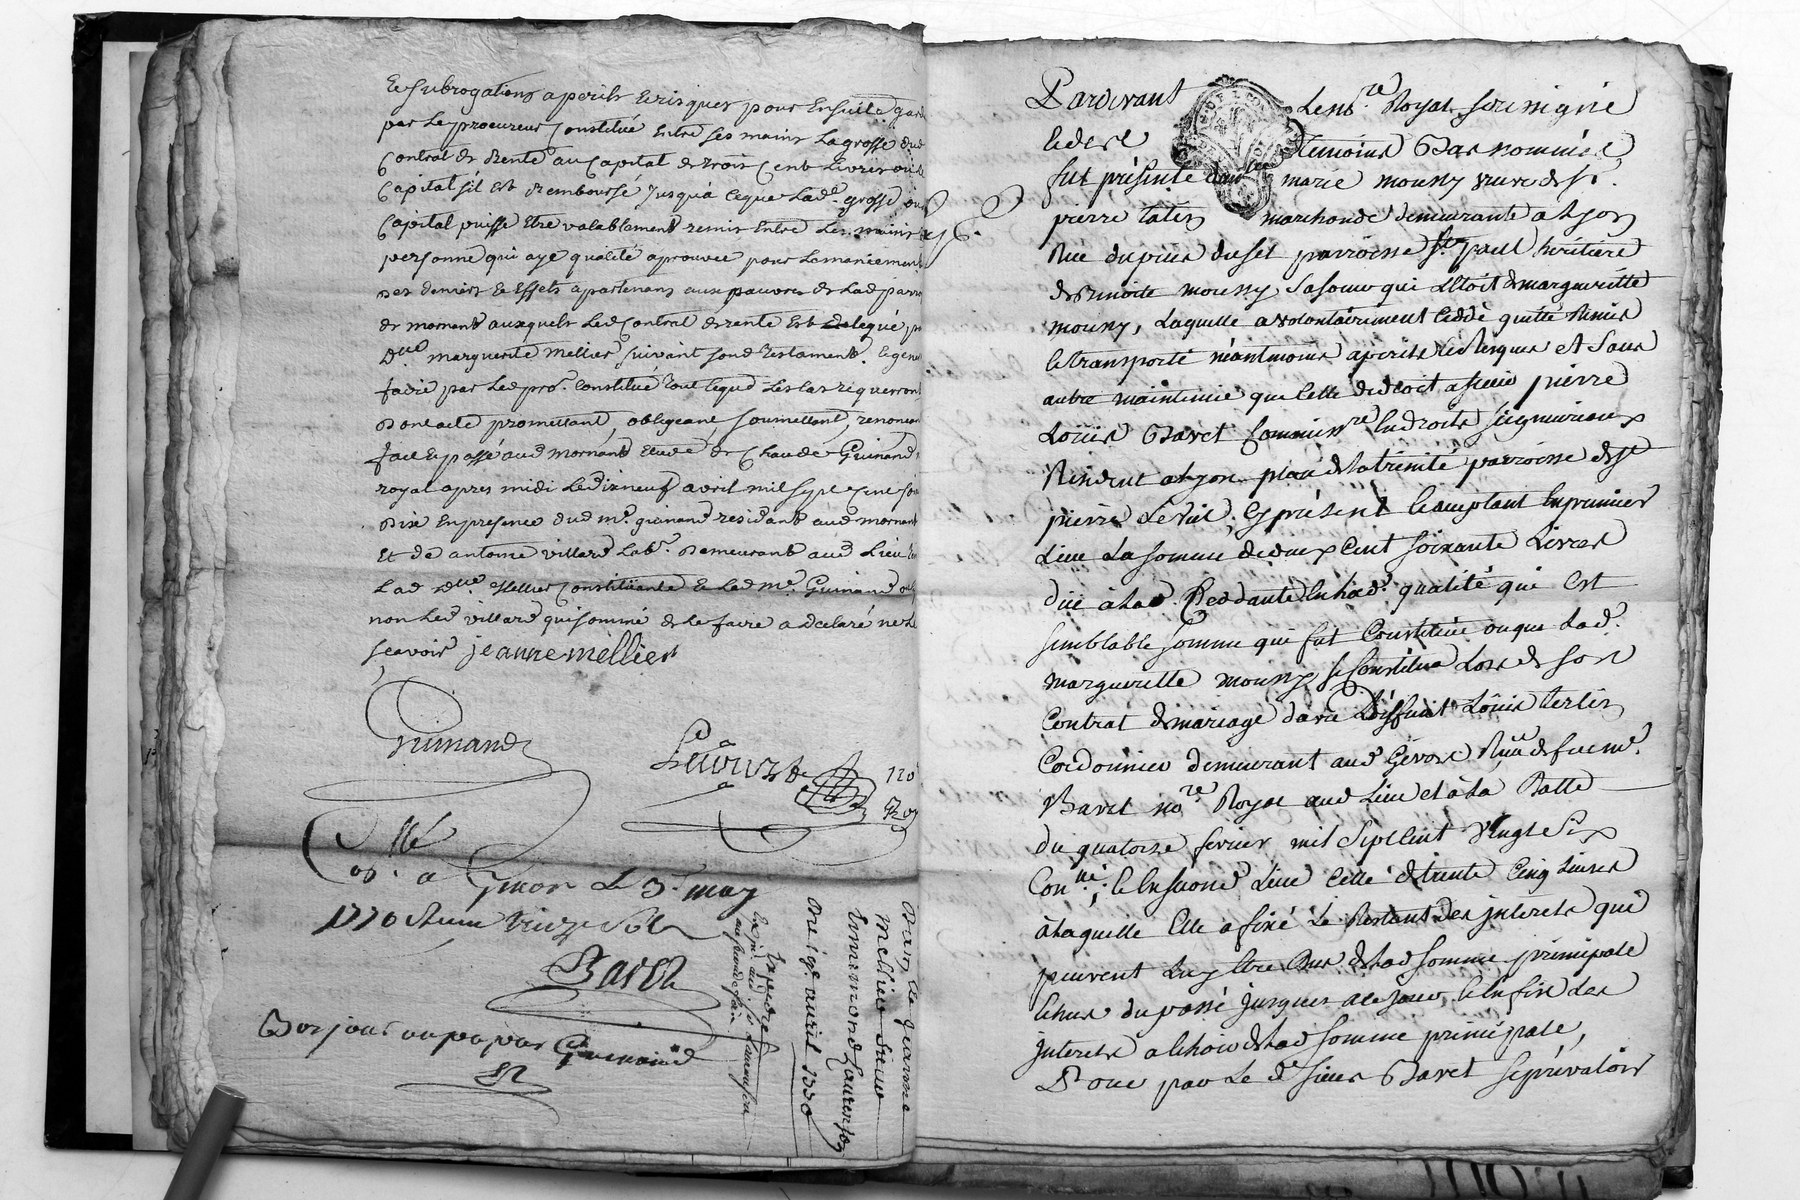 Et subrogations a perils et risques pour Ensuitte garde
par Le procureur Constitué Entre ses mains La grosse dud
Contrat de Rente au Capital de trois Cent Livres ou le
Capital s'il Est Remboursé Jusqu'à Ceque Lade. grosse ou
Capital puisse Etre valablement remis Entre Les mains
personne qui aye qualité aprouvée pour Le maniement
Des deniers Et Effets apartenans aux pauvres de Lad parroisse
de mornant auxquels Led Contrat de rente Est legué par
Dlle marguerite mellier suivant sond testament. Et gen
faire par Led pro. Constitué tout Ceque Les Cas requerront
Dont acte promettant, obligeant, soumettant, renoncant
fait Et passé aud mornant Etude de Claude Guinand
royal apres midi Le dixneuf avril mil sept Cent soix
Dix En presence dud me. guinand residant aud mornant
Et de antoine villard Labr. Demeurant aud Lieu
Lad Dlle. Mellier Constituante Et Led me. Guinand ont
non Led villard qui sommé de Le faire a declaré ne le
scavoir jeanne mellier
Guinand
120
Collé
a Givors Le 3e may
1770
Bavet
Bon jour au papier Guinand
Dud 19e avril 1770
Pardevant Le nore Royal soussigné
témoins Bas nommés,
fut présente marie mouny veuve de Sr.
pierre tatin marchande demeurante a Lyon
Rüe du puits du sel parroisse St. paul heritiere
de Benoite mouny Sa soeur qui L'etoit de margueritte
mouny, Laquelle a volontairement Ceddé quitté Remis
et transporté néantmoins a perils et Risques et Sans
autre maintenüe que Celle de droit a sieur pierre
Loüis Bavet Commissre En droits seigneuriaux
Résident a Lyon place de la trinité parroisse de St
pierre Le viel, Cy présent et acceptant En premier
Lieu La somme de deux Cent soixante Livres
düe à Lad. Ceddante En sad. qualité qui Est
semblable somme qui fut Constituée ou que Lad.
margueritte mouny se Constitua Lors de son
Contrat de mariage d'avec deffunt Loüis tertin
Cordonnier demeurant aud Givors Reçu de feu me.
Bavet nore Royal aud Lieu et à La Datte
du quatorze fevrier mil Sept Cent vingt Six
Conlé; et En second Lieu Celle de trente Cinq Livres
à Laquelle Elle a fixé Le Restant des Interets qui
peuvent Luy Etre dus de Lad somme principale
Echus du passé jusques a ce jour, et En fin Les
Interets a Echoir de Lad somme principale,
Pour par Le d. sieur Bavet se prévaloir